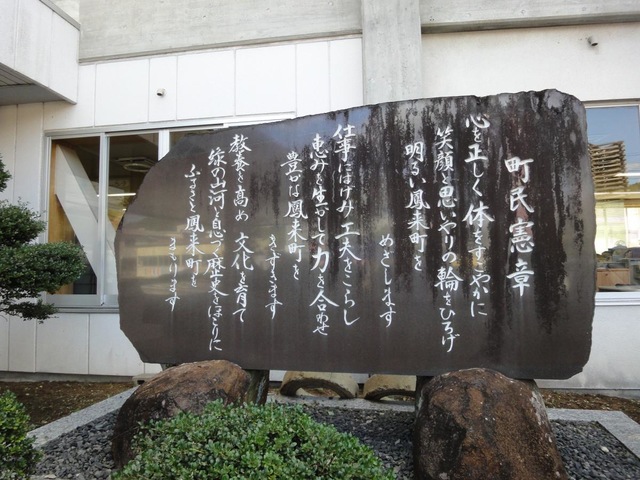 町民憲章
心を正しく体をすこやかに
笑顔と思いやりの輪をひろげ
明るい鳳来町を
めざします
仕事にはげみ工夫をこらし
恵みを生かして力を合わせ
豊かな鳳来町を
きずきます
教養を高め文化を育て
緑の山河と息づく歴史をほこりに
ふるさと鳳来町を
まもります